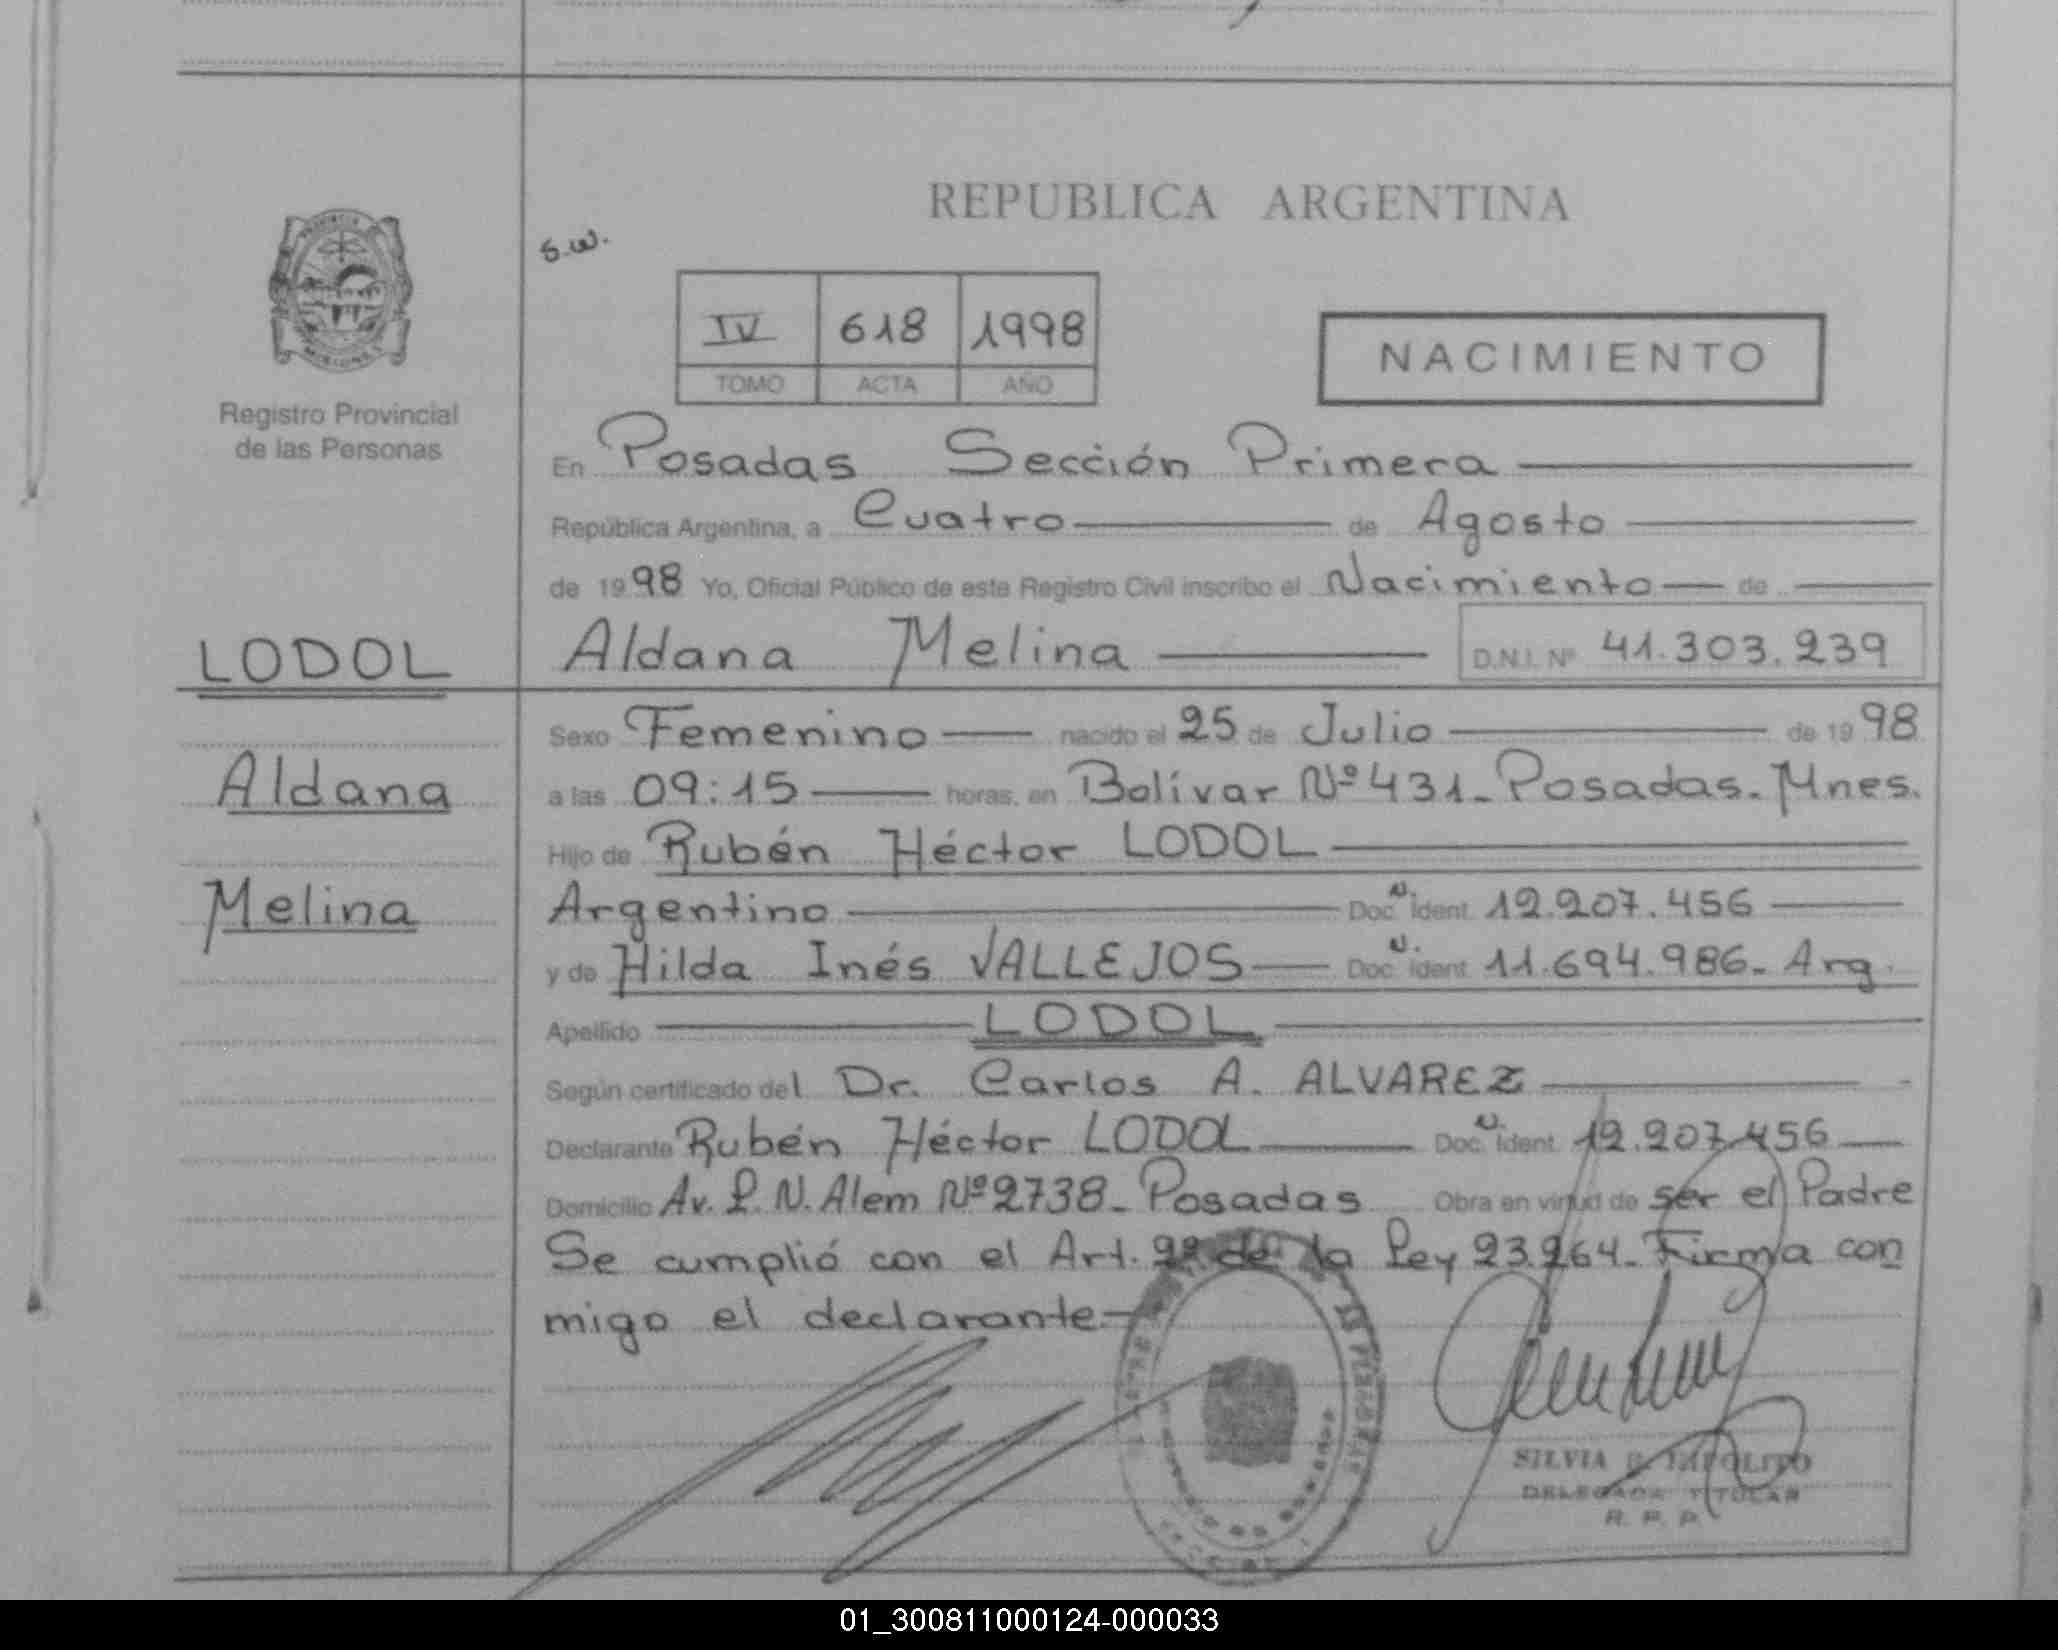 REPUBLICA ARGENTINA
s.w.
IV 618 1998
TOMO ACTA AÑO
NACIMIENTO
Registro Provincial
de las Personas
En Posadas Sección Primera
República Argentina, a Cuatro de Agosto
de 1998 Yo, Oficial Público de este Registro Civil inscribo el Nacimiento de
LODOL
Aldana Melina D.N.I. Nº 41.303.239
Sexo Femenino nacido el 25 de Julio de 1998
Aldana
a las 09:15 horas, en Bolívar Nº 431_ Posadas. Mnes.
Hijo de Rubén Héctor LODOL
Melina
Argentino Doc. N. Ident. 12.207.456
y de Hilda Inés VALLEJOS Doc. N. Ident. 11.694.986_ Arg.
Apellido LODOL
Según certificado del Dr. Carlos A. ALVAREZ
Declarante Rubén Héctor LODOL Doc. N. Ident. 12.207.456
Domicilio Av. L. N. Alem Nº 2738_ Posadas Obra en virtud de ser el Padre
Se cumplió con el Art. 9º de la Ley 23.264_ Firma con
migo el declarante
SILVIA
DELEGADA TITULAR
R. P. P.
01_300811000124-000033